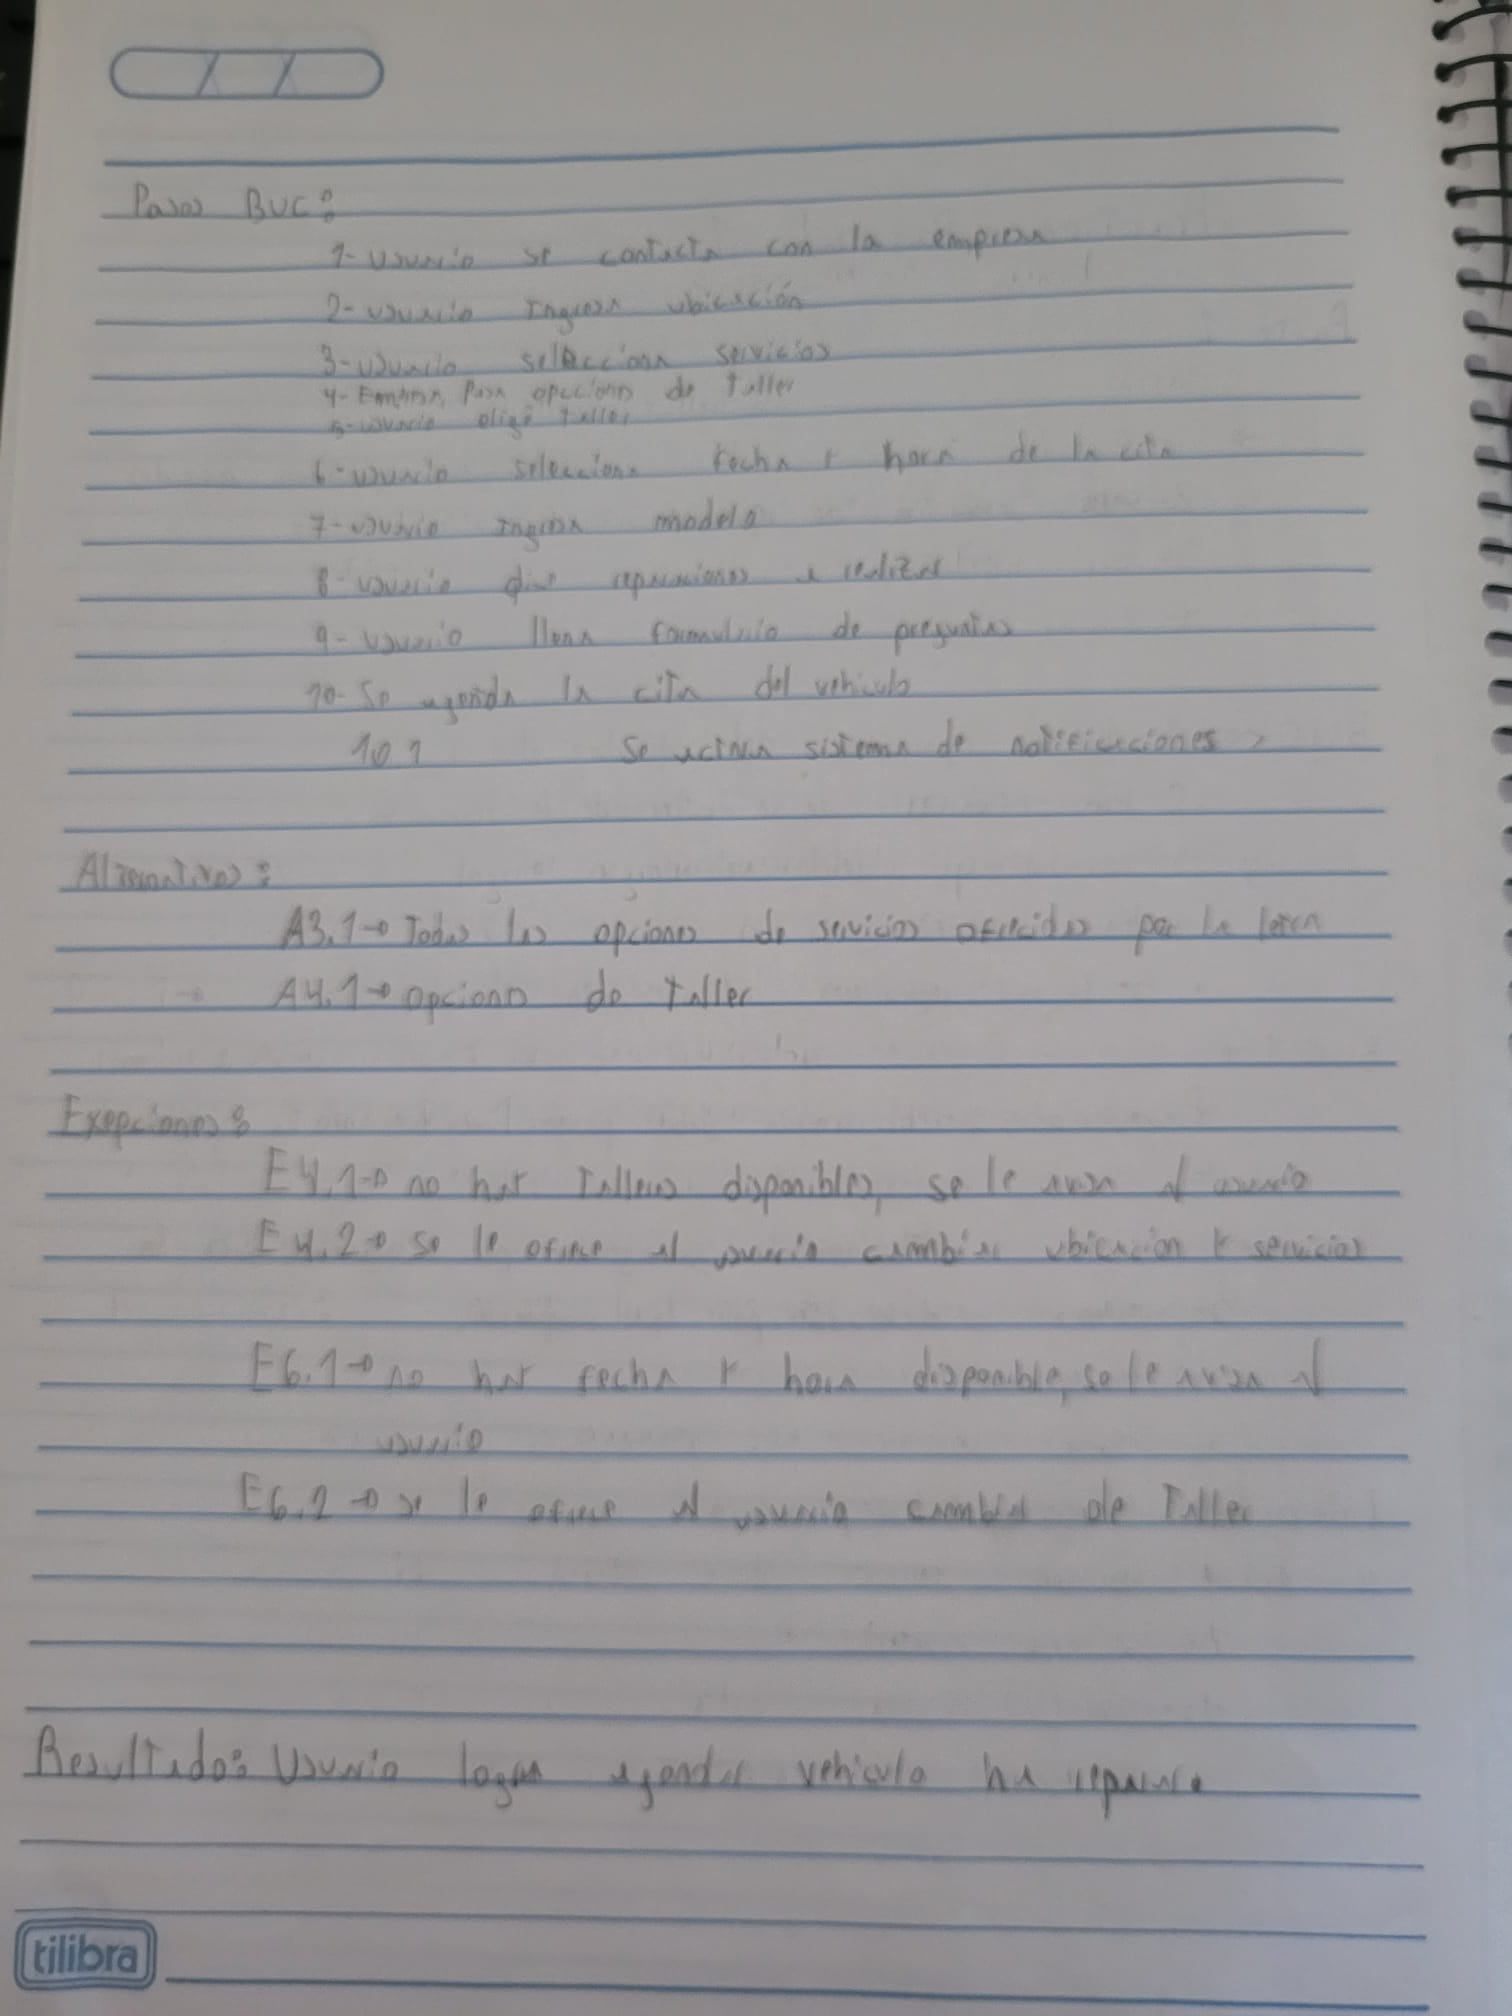 Pasos BUC:
1- usuario se contacta con la empresa
2- usuario Ingresa ubicación
3- usuario selecciona servicios
4- Empresa Pasa opciones de taller
5- usuario elige taller
6- usuario selecciona fecha y hora de la cita
7- usuario Ingresa modelo
8- usuario dice reparaciones a realizar
9- usuario llena formulario de preguntas
10- Se agenda la cita del vehiculo
10.1 Se activa sistema de notificaciones
Alternativas:
A3.1→ Todas las opciones de servicios ofrecidos por la
A4.1→ opciones de taller
Exepciones:
E4.1→ no hay Talleres disponibles, se le avisa al usuario
E4.2→ se le ofrece al usuario cambiar ubicacion y servicios
E6.1→ no hay fecha y hora disponible, se le avisa al
usuario
E6.2→ se le ofrece al usuario cambiar de Taller
Resultado: Usuario logra agendar vehiculo ha reparar
tilibra